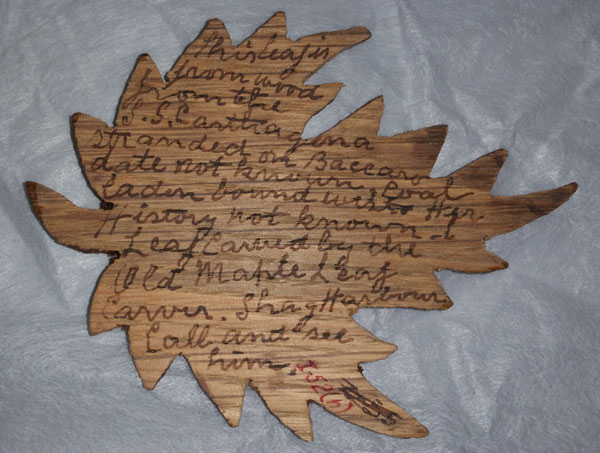 This leaf is
from wood
from the
S.S. Carthagena
stranded on Baccaro
date not known. Coal
laden bound west. Her
History not known.
Leaf Carved by the
Old Maple Leaf
Carver. Shag Harbour
Call and see
him.
252(b)